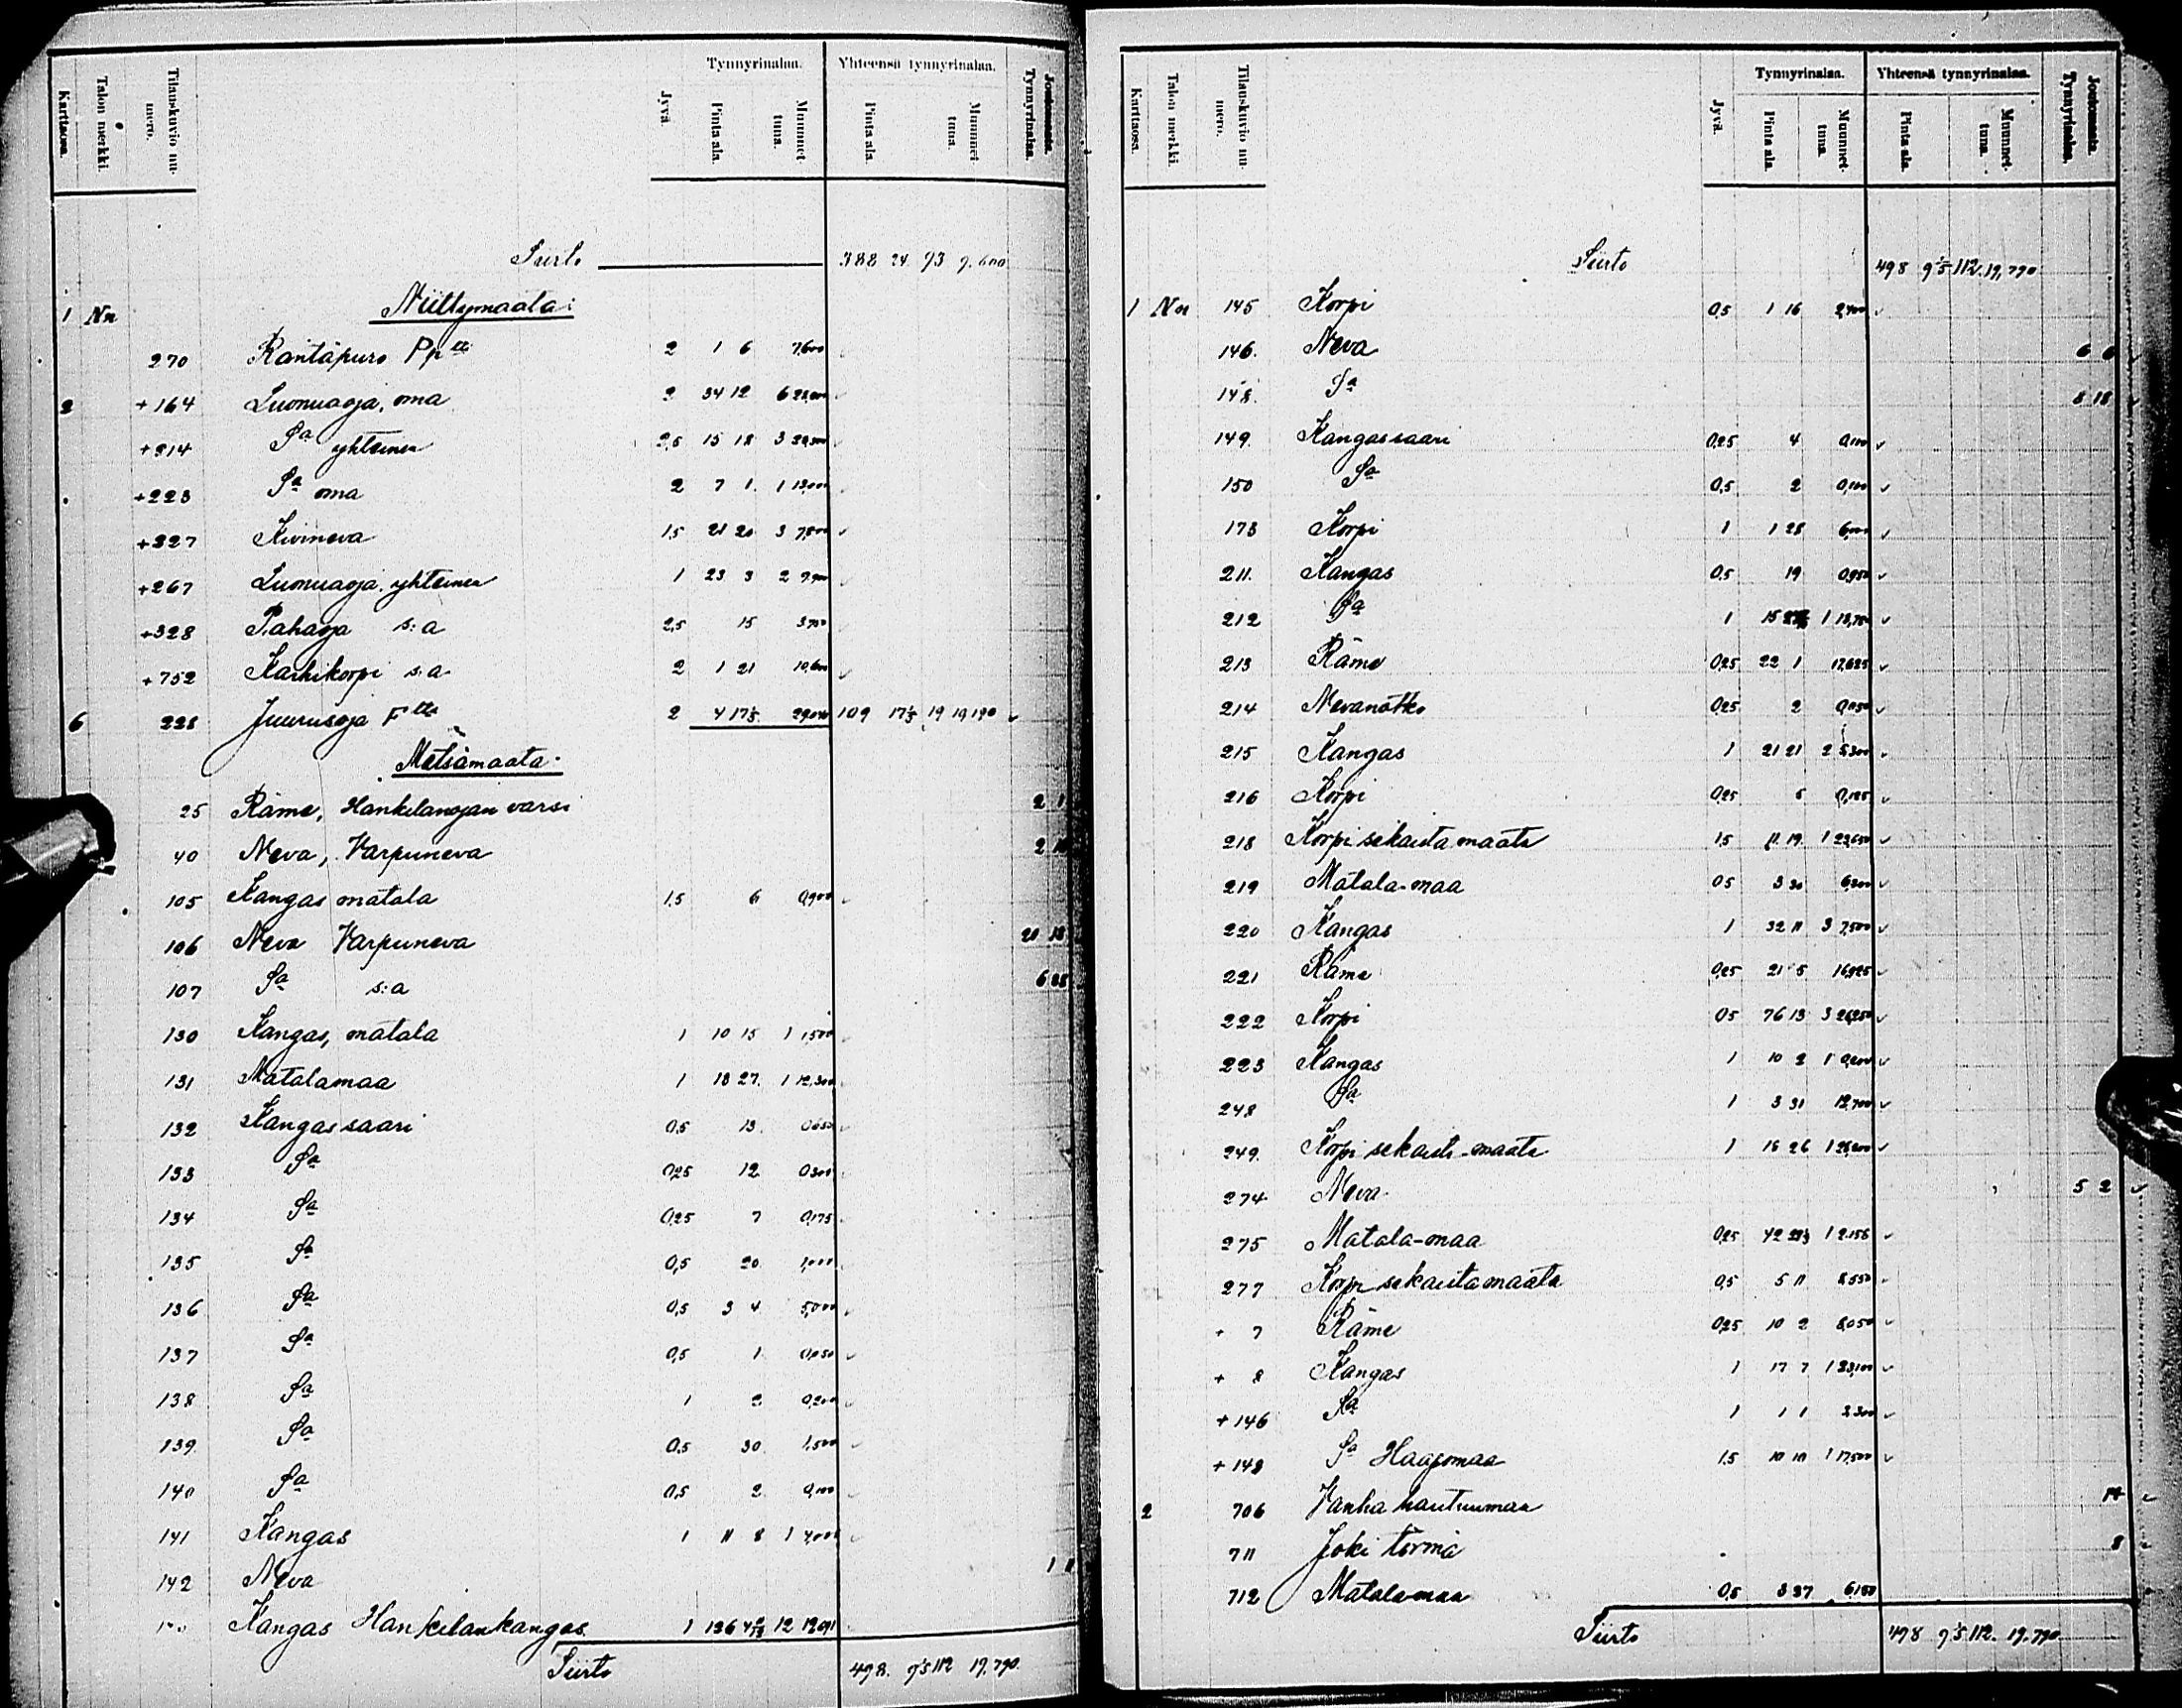 Karttaosa. Talon merkki. Tilauskuvio nu-mero. Jyvä. Tynnyrinalaa. Pinta ala. Muunnet-tuna. Yhteensä tynnyrinalaa. Pinta ala. Muunnet-tuna. Joutomaata. Tynnyrinalaa.
Siirto 388 24 93 9.600
1 Nn Niittymaata:
270 Rantapuro Pp tt 2 1 6 7,600
2 +164 Luonuaoja, oma 2 34 12 6
+314 Sa yhteinen 2,5 15 18 3
+223 Sa oma 2 7 1 1
+327 Kivineva 1,5 21 20 3
+267 Luonuaoja, yhteinen 1 23 3 2
+328 Pahaoja s:a 2,5 15 3,750
+752 Karhikorpi s:a 2 1 21 10,600
6 228 Juurusoja F tta 2 4 17⅓ 109 17⅓ 19 19,190
Metsämaata.
25 Räme, Hankilanojan varsi 2 1
40 Neva, Varpuneva 2
105 Kangas matala 1,5 6 0,900
106 Neva Varpuneva 21 18
107 Sa s:a 6 28
130 Kangas, matala 1 10 15 1 1,500
131 Matalamaa 1 18 27 1 12,300
132 Kangassaari 0,5 13 0,650
133 Sa 0,25 12 0,300
134 Sa 0,25 7 0,175
135 Sa 0,5 20 1,000
136 Sa 0,5 3 4 5,000
137 Sa 0,5 1 0,050
138 Sa 1 2 0,200
139 Sa 0,5 30 1,500
140 Sa 0,5 2 0,100
141 Kangas 1 11 8 1 4,000
142 Neva 1
Kangas Hankilankangas 1 136 12
Siirto 498 9⅕ 112 19.790
Karttaosa. Talon merkki. Tilauskuvio nu-mero. Jyvä. Tynnyrinalaa. Pinta ala. Muunnet-tuna. Yhteensä tynnyrinalaa. Pinta ala. Muunnet-tuna. Joutomaata. Tynnyrinalaa.
Siirto 498 9⅕ 112 19,790
1 Nn 145 Korpi 0,5 1 16 2,400
146 Neva 6 6
148 Sa 8 18
149 Kangassaari 0,25 4 0,100
150 Sa 0,5 2 0,100
173 Korpi 1 1 28 6,000
211 Kangas 0,5 19 0,950
212 Sa 1 15 1
213 Räme 0,25 22 1 17,625
214 Nevanotko 0,25 2 0,050
215 Kangas 1 21 21 2 5,300
216 Korpi 0,25 5 0,125
218 Korpi sekaista maata 1,5 11 19 1 23,650
219 Matala-maa 0,5 3 30 6,300
220 Kangas 1 32 11 3 7,500
221 Räme 0,25 21 5 16,925
222 Korpi 0,5 76 13 3 26,250
223 Kangas 1 10 2 1 0,200
248 Sa 1 3 31 12,700
249 Korpi sekaista maata 1 16 26 1
274 Neva 5 2
275 Matala-maa 0,25 42 1 2,156
277 Korpi sekaista maata 0,5 5 11 8,550
+ 7 Räme 0,25 10 2 8,050
+ 8 Kangas 1 17 7 1 23,100
+146 Sa 1 1 1 3,300
+148 Sa Haapomaa 1,5 10 10 1 17,500
2 706 Vanha hautuumaa 14
711 Joki törmä 8
712 Matalamaa 0,5 3 27 6,150
Siirto 498 9⅕ 112. 19.790